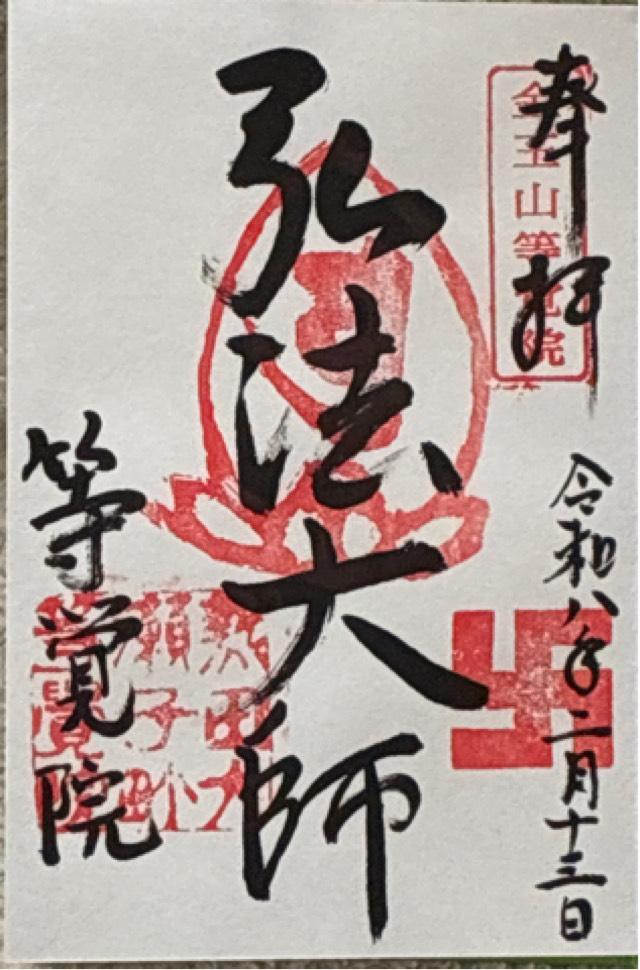 奉拝
令和八年二月十三日
金玉山等覚院
弘法大師
等覚院